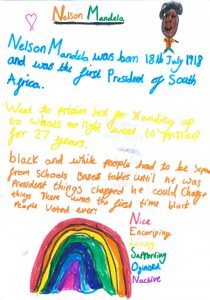 Nelson Mandela
Nelson Mandela was born 18th July 1918
and was the first President of South
Africa.
Went to prison just for standing up
to whats right went to prison
for 27 years.
black and white people had to be
from Schools Based tables until he was
President things changed he could Change
thing There was the first time black
People Voted ever.
Nice
Encoriging
Loving
Supporting
Opinised
Nactive